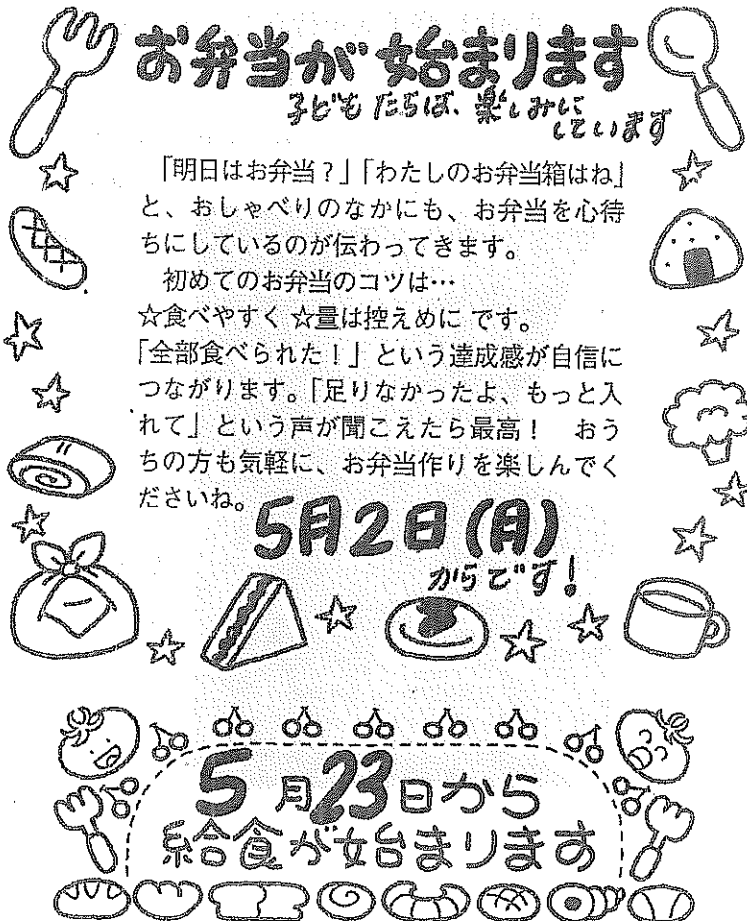 お弁当が始まります
子どもたちは、楽しみに
しています
「明日はお弁当？」「わたしのお弁当箱はね」
と、おしゃべりのなかにも、お弁当を心待
ちにしているのが伝わってきます。
初めてのお弁当のコツは…
☆食べやすく ☆量は控えめに です。
「全部食べられた！」という達成感が自信に
つながります。「足りなかったよ、もっと入
れて」という声が聞こえたら最高！　おう
ちの方も気軽に、お弁当作りを楽しんでく
ださいね。
5月2日(月)
からです！
5月23日から
給食が始まります